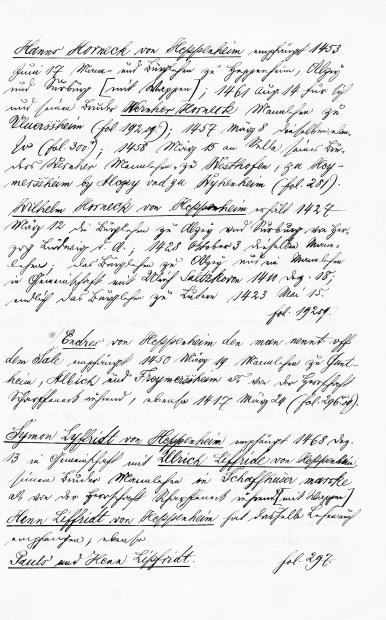 Hanns Horneck von Heppenheim empfängt 1453
Juni 17 Mann- und Burglehen zu Heppenheim, Alzey
und [mit Wappen]; 1461 Aug. 14 für sich
und seinen Bruder Wernher Horneck Mannlehen zu
(fol 192 sq); 1457 März 8 denselben
(fol. 300); 1458 März 15 an Stelle seines Bru-
ders Wernher Mannlehen zu Westhofen, zu
by Alzey und zu (fol. 281).
Wilhelm Horneck von Heppenheim erhält 1427
März 12 die Burglehen zu Alzey und von Her-
zog Ludwig d. A.; 1428 Oktober 3 dieselben Mann-
lehen, das Burglehen zu Alzey und ein Mannlehen
in Gemeinschaft mit Saltzkorn 1410 Dez. 18;
endlich das Burglehen zu Lutern 1423 Mai 15.
fol. 192 sq.
Endres von Heppenheim den man nennt off
dem Sale, empfängt 1450 März 19 Mannlehen zu
Albich und Freymersheim als von der Herrschaft
Scharffeneck rührend, ebenso 1417 März 24 (fol. 296 sq).
Symon Lyffridt von Heppenheim empfängt 1468 Dez.
13 in Gemeinschaft mit Ullrich Leffride von Heppenheim
seinem Bruder Mannlehen in Schaffhuser marcke
als von der Herrschaft Scharfeneck rührend [mit Wappen]
Henn Liffridt von Heppenheim hat dasselbe Lehen auch
empfangen, ebenso
Pauls und Henn Liffridt. fol. 297.